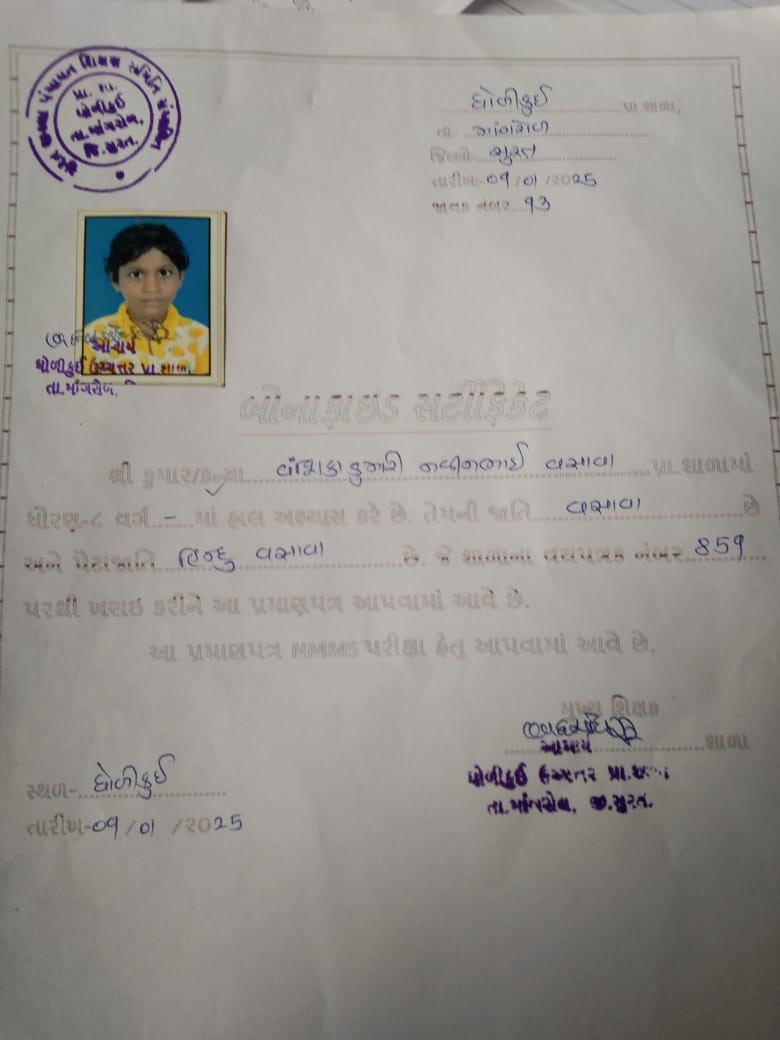 જિલ્લા પંચાયત શિક્ષણ સમિતિ સંચાલિત
પ્રા. શા.
ધોળીકુઈ
તા.માંગરોળ,
જિ.સુરત.
ધોળીકુઈ પ્રા.શાળા,
તા- માંગરોળ
જિલ્લો- સુરત
તારીખ:-૦9/૦1/૨૦25
જાવક નંબર ૧૩
આચાર્ય
ધોળીકુઈ ઉચ્ચતર પ્રા.શાળા
તા.માંગરોળ,
બોનાફાઇડ સર્ટીફિકેટ
શ્રી કુમાર/કન્યા વંશિકાકુમારી નવીનભાઈ વસાવા પ્રા.શાળામાં
ધોરણ-૮ વર્ગ - માં હાલ અભ્યાસ કરે છે. તેમની જાતિ વસાવા છે
અને પેટાજાતિ હિન્દુ વસાવા છે. જે શાળાના વયપત્રક નંબર 859
પરથી ખરાઇ કરીને આ પ્રમાણપત્ર આપવામાં આવે છે.
આ પ્રમાણપત્ર NMMS પરીક્ષા હેતુ આપવામાં આવે છે.
મુખ્ય શિક્ષક
આચાર્ય શાળા
ધોળીકુઈ ઉચ્ચતર પ્રા.શાળા
તા.માંગરોળ, જી.સુરત.
સ્થળ- ધોળીકુઈ
તારીખ-૦9/૦1/૨૦25